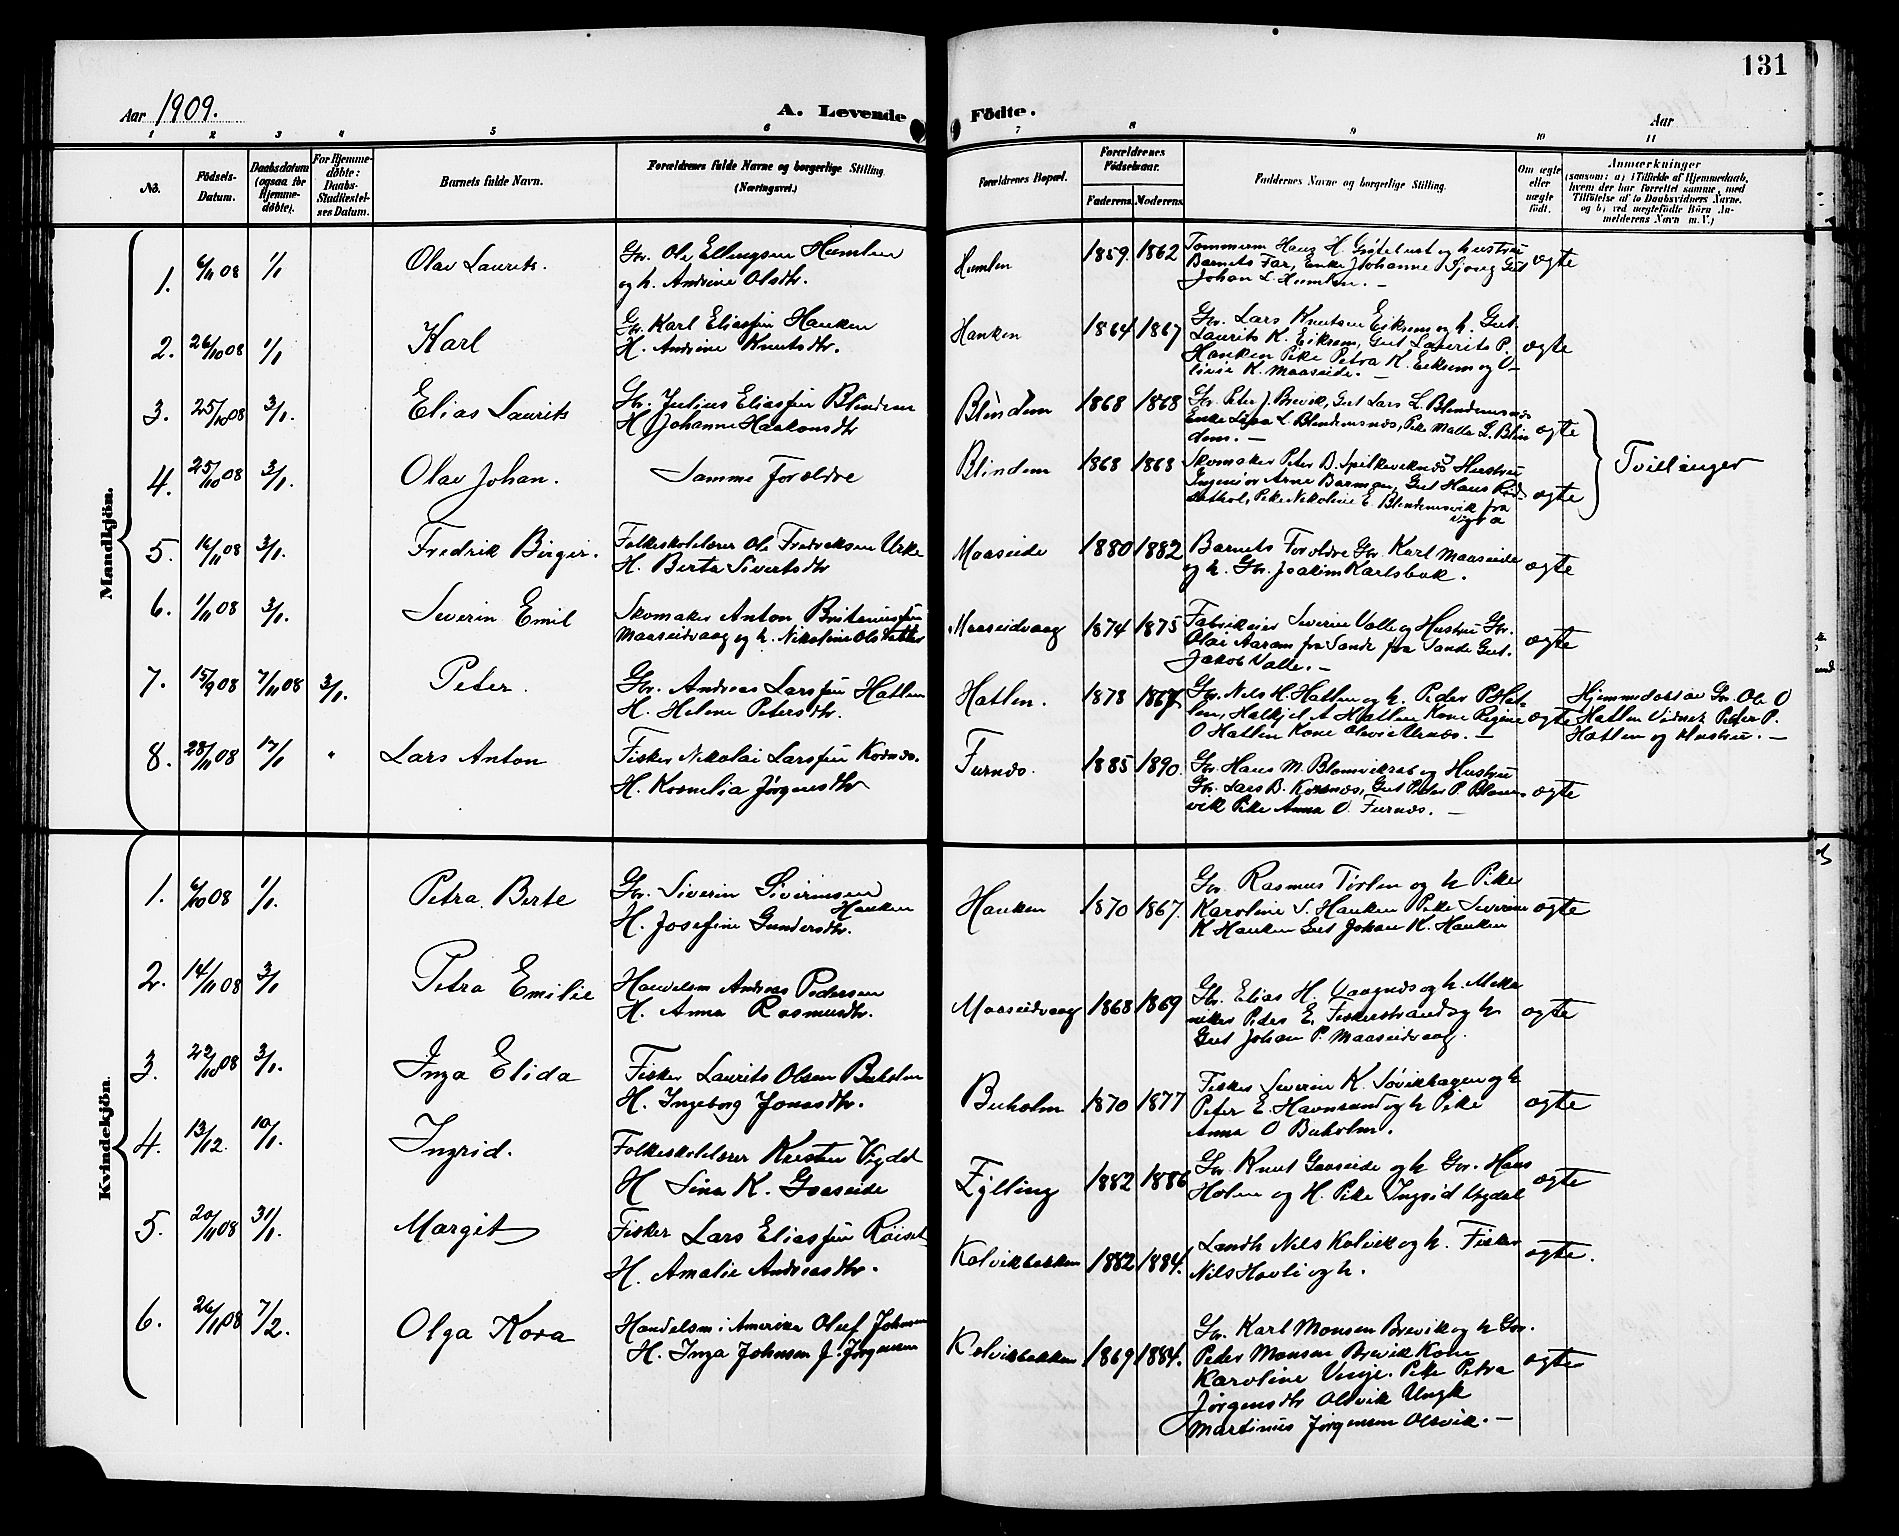 131
Aar 1909.
A. Levende
Födte.
Aar
1 2 3 4 5 6 7 8 9 10 11
No.
Födsels-
Datum.
Daabsdatum
(ogsaa for
Hjemme-
döbte).
For Hjemme-
döbte:
Daabs-
Stadfæstel-
ses Datum.
Barnets fulde Navn.
Forældrenes fulde Navne og borgerlige Stilling
(Næringsvei.)
Forældrenes Bopæl.
Forældrenes
Födselsaar.
Faderens.
Moderens.
Faddernes Navne og borgerlige Stilling.
Om ægte
eller
uægte
født.
Anmærkninger
(saasom: a) i Tilfælde af Hjemmedaab,
hvem der har forrettet samme, med
Tilföielse af to Daabsvidners Navne,
og b) ved uægtefödte Börn An-
melderens Navn m. V.)
Mandkjön.
1. 6/11 08 1/1 Olav Laurits.
Gr. Ole Ellingsen Humlen
og h. Andrine Olsdtr.
Humlen 1859. 1862
Tommerm Hans H. Gjøtelust og hustru
Barnets Far, Enke Johanne Gut
Johan L. Humlen. —
ægte
2. 26/10 08 1/1 Karl
Gr. Karl Eliassen Hanken
H. Andrine Knutsdtr.
Hanken 1864 1867
Gr. Lars Knutsen Eiksem og h. Gut
Laurits K. Eiksem, Gut Laurits P.
Hanken Pike Petra K. Eiksem og O-
livie K. Maaseide. —
ægte
3. 25/10 08 3/1. Elias Laurits
Gr. Julius Eliassen Blindem
H. Johanne Haakonsdtr
Blindem 1868 1868
Gr. Peter J. Brevik, Gut Lars L. Blindemsnæs
Enke L. Blindemsnæs, Pike Malla L. Blin
dem. —
ægte
4. 25/10 08 3/1. Olav Johan.
Samme Forældre
Blindem 1868 1868
Skomaker Peter B. Spilkeviknæs Hustru
Ingeniør Arne Barman, Gut Hans
Pike Nikoline E. Blindemsvik fra
Vigra
ægte
Tvillinger
5. 16/11 08 3/1. Fredrik Birger.
Folkeskolelærer Ole Fredriksen Urke
H. Berta Sivertsdtr
Maaseide 1880 1882
Barnets Forældre Gr. Karl Maaseide
og h. Gr. Joakim Karlsbak.
ægte
6. 1/11 08 3/1. Severin Emil
Skomaker Anton
Maaseidvaag og h. Nikoline Olsdatter
Maaseidvaag 1874 1875
Fabrikeier Severin Valle og Hustru Gr.
Olai Aaram fra Sande fra Sande Gut.
Jakob Valle. —
ægte
7. 15/9 08 7/11 08 3/1. Peter.
Gr. Andreas Larssen Hatlen
H. Helene Petersdtr.
Hatlen. 1878
Gr. Nils H. Hatlen og h. Peder P. Hat-
len, Halkjel A Hatlen Kone Regine
O Hatlen Kone Olivie Urnæs. —
ægte
Hjemmedøbt av Gr. Ole O
Hatlen Vidner Peder P.
Hatlen og Hustru. —
8. 28/11 08 17/1 " Lars Anton
Fisker Nikolai Larssen Korsnæs.
H. Kornelia Jørgensdtr
Furnæs. 1885 1890.
Gr. Hans M. Blomvikrab og Hustru
Gr. Lars B. Korsnæs, Gut Peder P. Blom-
vik Pike Anna O. Furnæs. —
ægte
Kvindekjön.
1. 6/10 08 1/1. Petra Berte
Gr. Siverin Sivirinsen
Hanken
H. Josefine Gundersdtr.
Hanken 1870 1867.
Gr Rasmus Tørlen og h Pike
Karoline S. Hanken Pike Severine
K Hanken Gut Johan K. Hanken
ægte
2. 14/11 08 3/1 Petra Emilie
Handelsm Andreas Pedersen
H. Anna Rasmusdtr.
Maaseidvaag 1868 1869
Gr. Elias H. Vaagnæs og h. Meka
niker Peder E. Fiskerstrand og h
Gut Johan P. Maaseidvaag.
ægte
3. 22/10 08 3/1. Inga Elida
Fisker Laurits Olsen Buholm
H. Ingeborg Jonasdtr.
Buholm 1870 1877
Fisker Severin K. Søvikhagen og h
Peter E. Havnsund og h Pike
Anna O Buholm.
ægte
4. 13/12. 10/1. Ingrid.
Folkeskolelærer Kristen Vigdal
H Sina K. Gaaseide
Fylling 1882 1886
Gr. Knut Gaaseide og h Gr. Hans
Holen og H. Pike Ingrid Vigdal
ægte
5. 20/11 08 31/1. Margit
Fisker Lars Eliassen Røiset
H. Amalie Andreasdtr.
Kolvikbakken 1882 1884.
Landh Nils Kolvik og h. Fisker
Nils Hovli og h.
ægte.
6. 26/11 08 7/2. Olga Kora
Handelsm i Amerika Oluf Johnsen
H. Inga Johnsen f. Jørgensen
Kolvikbakken 1869 1884.
Gr. Karl Monsen Brevik og h Gr.
Peder Monsen Brevik Kone
Karoline Vinje. Pike Petra
Jørgensdtr Olsvik Ungk
Martinus Jørgensen Olsvik. —
ægte